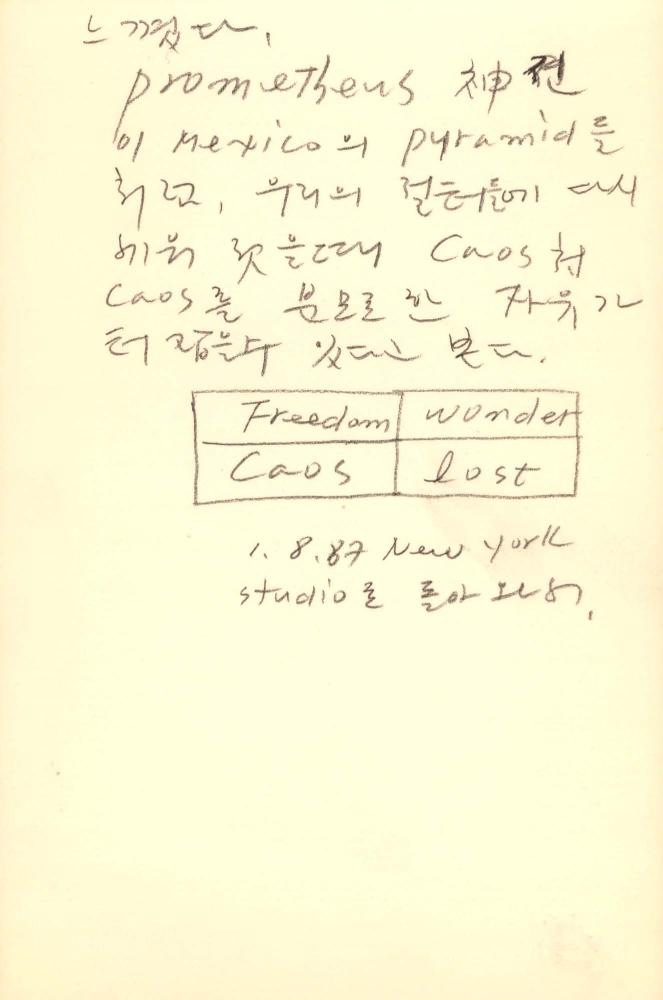 느꼈다.
prometheus 神전
이 Mexico의 pyramid를
우리의 절터들에 다시
Caos
Caos를 분모로한 자유가
있다고 본다.
Freedom wonder
Caos lost
1.8.87 New york
studio로 돌아오며,